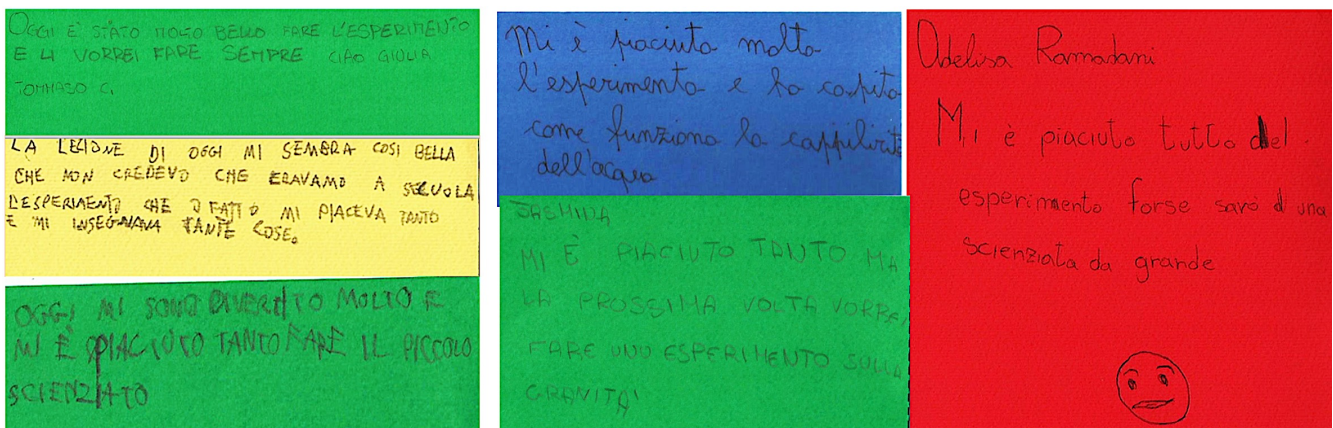 OGGI È STATO MOLTO BELLO FARE L'ESPERIMENTO
E LI VORREI FARE SEMPRE CIAO GIULIA
TOMMASO C.
LA LEZIONE DI OGGI MI SEMBRA COSI BELLA
CHE NON CREDEVO CHE ERAVAMO A SCUOLA
L'ESPERIMENTO CHE O FATTO MI PIACEVA TANTO
E MI INSEGNAVA TANTE COSE.
OGGI MI SONO DIVERTITO MOLTO E
MI È PIACIUTO TANTO FARE IL PICCOLO
SCIENZIATO
Mi è piaciuto molto
l'esperimento e ho capito
come funziona la cappilirità
dell'acqua
JASMIDA
MI È PIACIUTO TANTO MA
LA PROSSIMA VOLTA VORREI
FARE UNO ESPERIMENTO SULLA
GRAVITA'
Adelisa Ramadani
Mi è piaciuto tutto del
esperimento forse sarò una
scienziata da grande